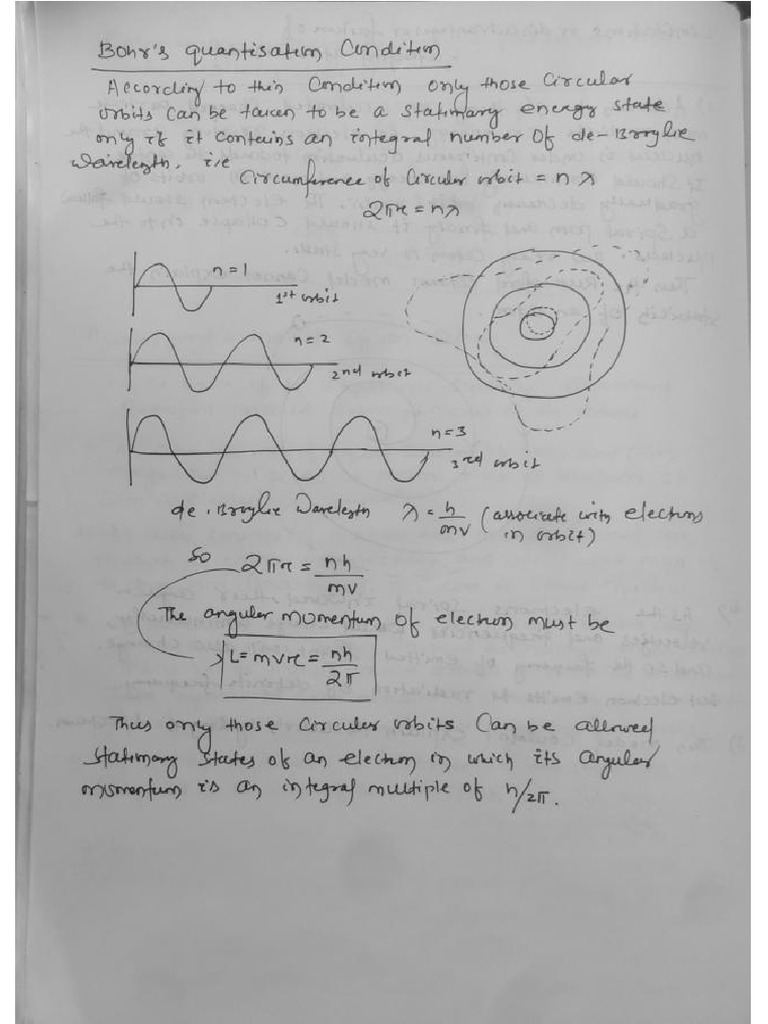 Bohr's quantisation Condition
According to this Condition only those Circular
orbits can be taken to be a stationary energy state
only if it contains an integral number of de-Broglie
Wavelength. i.e
Circumference of Circular orbit = n λ
2πr = nλ
n = 1
1st orbit
n = 2
2nd orbit
n = 3
3rd orbit
de-Broglie Wavelength λ = h/mv (associate with electrons
in orbit)
So 2πr = nh/mv
The angular momentum of electron must be
L = mvr = nh/2π
Thus only those circular orbits Can be allowed
stationary states of an electron in which its angular
momentum is an integral multiple of h/2π.